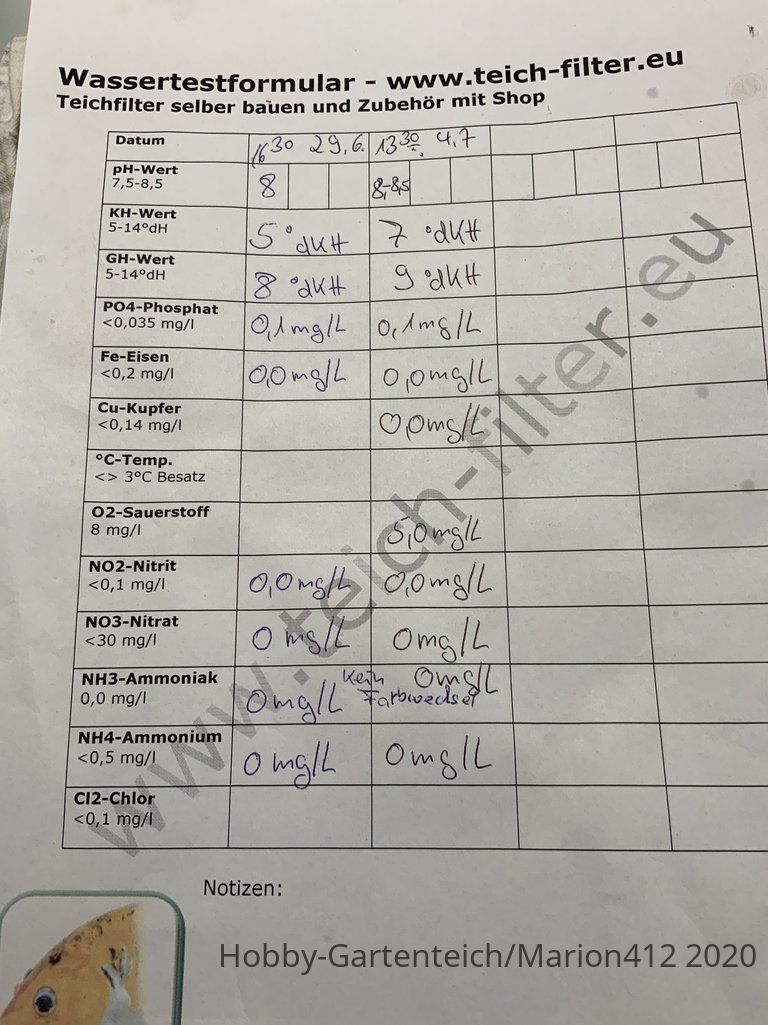 Wassertestformular - www.teich-filter.eu
Teichfilter selber bauen und Zubehör mit Shop
Datum 16 30 29,6. 13 30 4,7
pH-Wert 8 8,-8,5
7,5-8,5
KH-Wert 5 °dKH 7 °dKH
5-14°dH
GH-Wert 8 °dKH 9 °dKH
5-14°dH
PO4-Phosphat 0,1mg/L 0,1mg/L
<0,035 mg/l
Fe-Eisen 0,0mg/L 0,0mg/L
<0,2 mg/l
Cu-Kupfer 0,0mg/L
<0,14 mg/l
°C-Temp.
<> 3°C Besatz
O2-Sauerstoff 5,0mg/L
8 mg/l
NO2-Nitrit 0,0mg/L 0,0mg/L
<0,1 mg/l
NO3-Nitrat 0 mg/L 0mg/L
<30 mg/l
NH3-Ammoniak kein 0mg/L
0,0 mg/l 0mg/L Farbwechsel
NH4-Ammonium 0 mg/L 0mg/L
<0,5 mg/l
Cl2-Chlor
<0,1 mg/l
www.teich-filter.eu
Notizen:
Hobby-Gartenteich/Marion412 2020